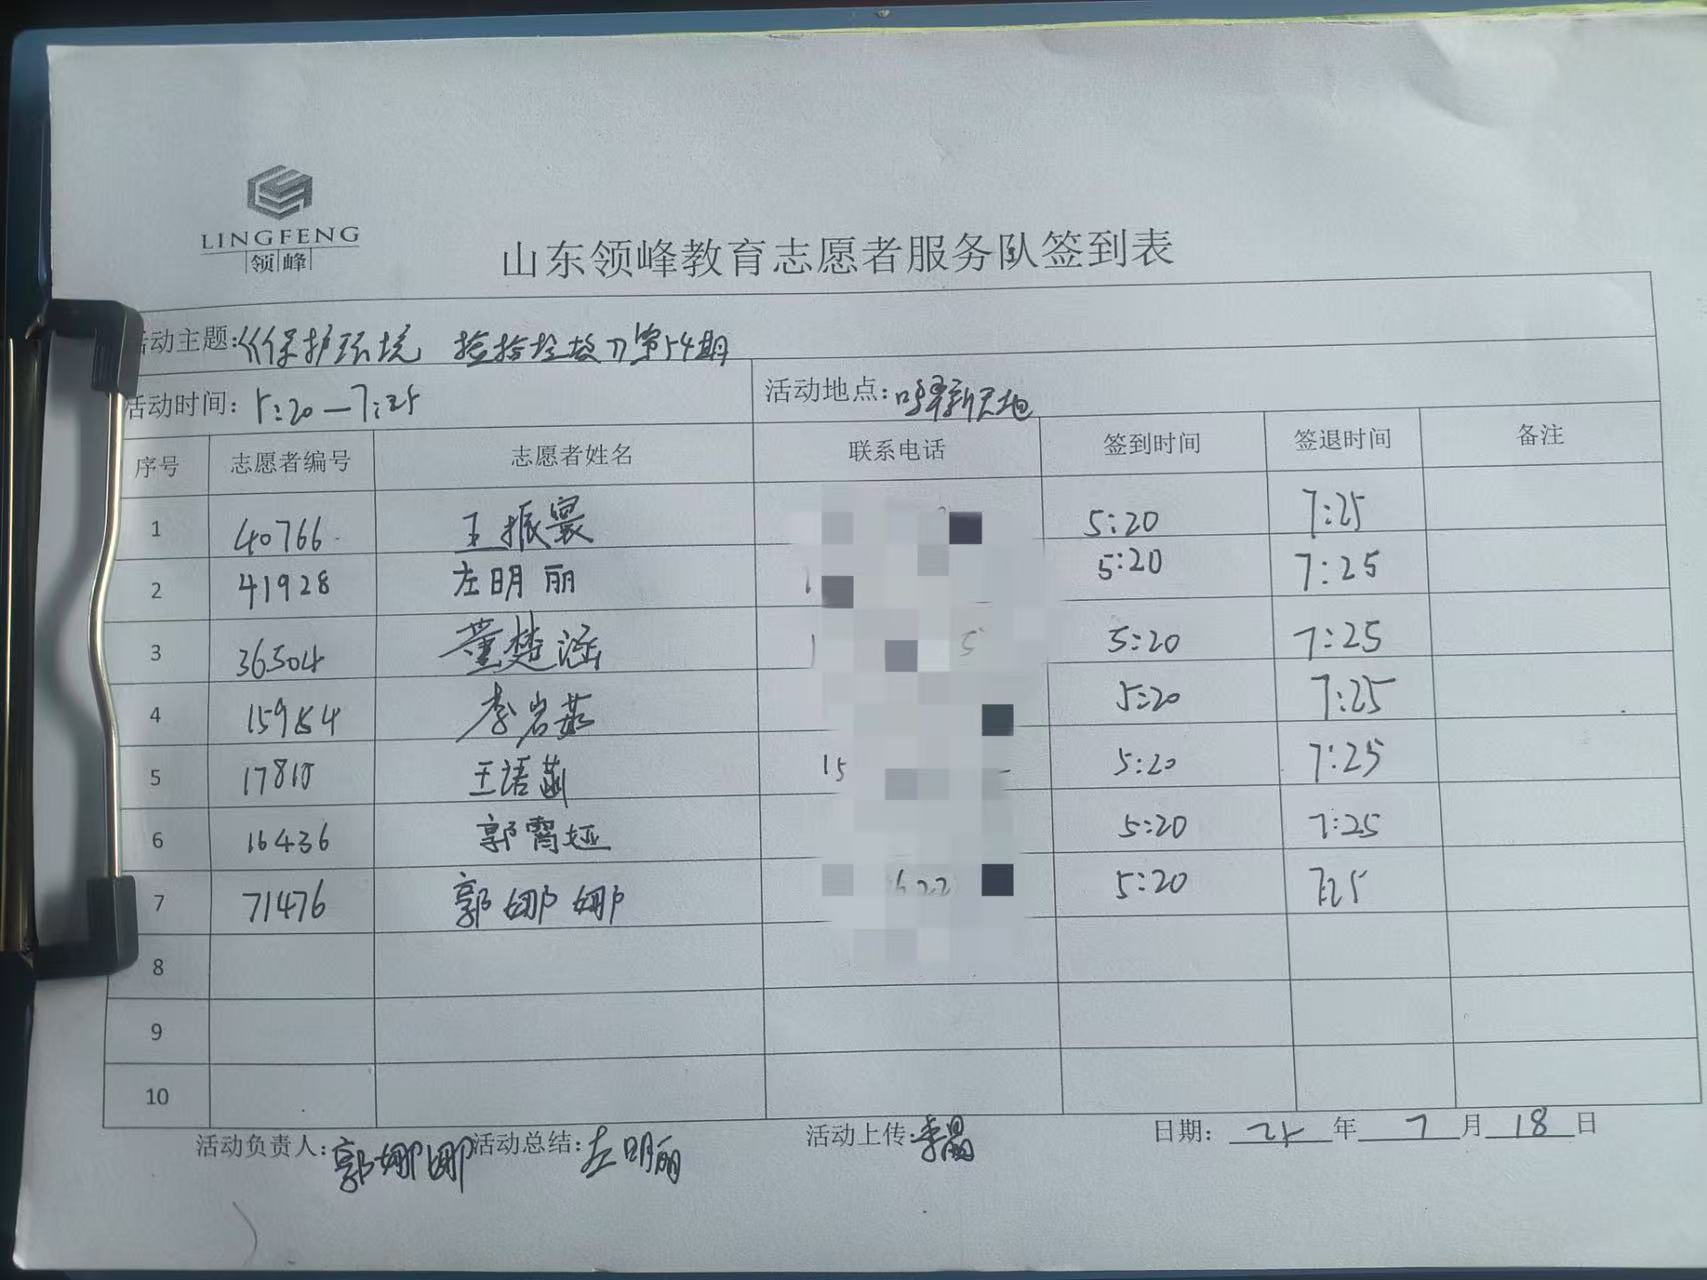 LINGFENG
领峰
山东领峰教育志愿者服务队签到表
活动主题:《保护环境 捡拾垃圾》第54期
活动时间: 5:20—7:25 活动地点: 新天地
序号 志愿者编号 志愿者姓名 联系电话 签到时间 签退时间 备注
1 40766 王振寰 5:20 7:25
2 41928 左明丽 5:20 7:25
3 36504 董楚涵 5 5:20 7:25
4 15954 李岩茹 5:20 7:25
5 17815 王语菡 15 5:20 7:25
6 16436 郭霄娅 5:20 7:25
7 71476 郭娜娜 622 5:20 7:25
8
9
10
活动负责人: 郭娜娜 活动总结: 左明丽 活动上传: 李晶 日期: 25 年 7 月 18 日